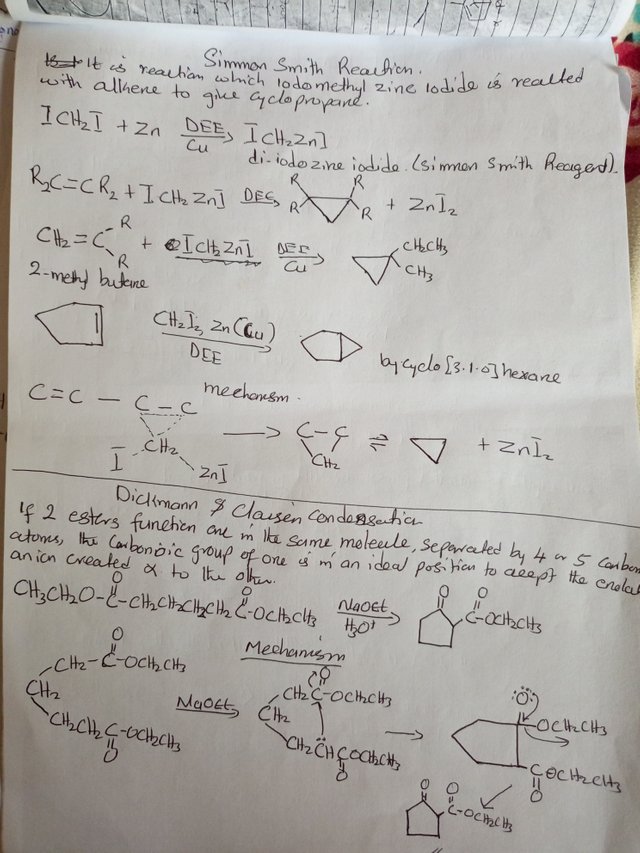 Simmon Smith Reaction.
It is reaction which Iodomethyl zinc Iodide is reacted
with alkene to give Cyclopropane.
ICH2I + Zn DEE Cu → ICH2ZnI
di-iodozinc iodide. (Simmon Smith Reagent).
R2C=CR2 + ICH2ZnI DEE → R R R R + ZnI2
CH2=C R R + ICH2ZnI DEE Cu → CH2CH3 CH3
2-methyl butane
CH2I2, Zn(Cu) DEE →
bycyclo[3.1.0]hexane
mechanism.
C=C — C—C CH2 I ZnI → C-C CH2 ⇌ + ZnI2
Dickmann & Claisen Condensation
If 2 esters function are in the same molecule, separated by 4 or 5 Carbon
atoms, the Carbonoic group of one is in an ideal position to accept the enolat
anion created α to the other.
CH3CH2O-C-CH2CH2CH2CH2C-OCH2CH3 NaOEt H3O+ → O O C-OCH2CH3
Mechanism
CH2-C-OCH2CH3 O
CH2
CH2CH2C-OCH2CH3 O
NaOEt →
CH2C-OCH2CH3 O
CH2
CH2CHCOCH2CH3 O
→
O OCH2CH3
COCH2CH3 O
O O C-OCH2CH3